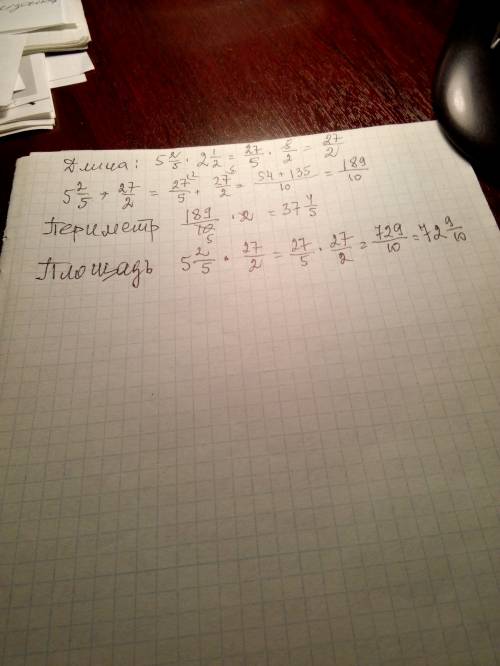 Длина: 5 2/5 · 2 1/2 = 27/5 · 5/2 = 27/2
5 2/5 + 27/2 = 27/5 + 27/2 = (54 + 135)/10 = 189/10
Периметр 189/10 · 2 = 37 4/5
Площадь 5 2/5 · 27/2 = 27/5 · 27/2 = 729/10 = 72 9/10